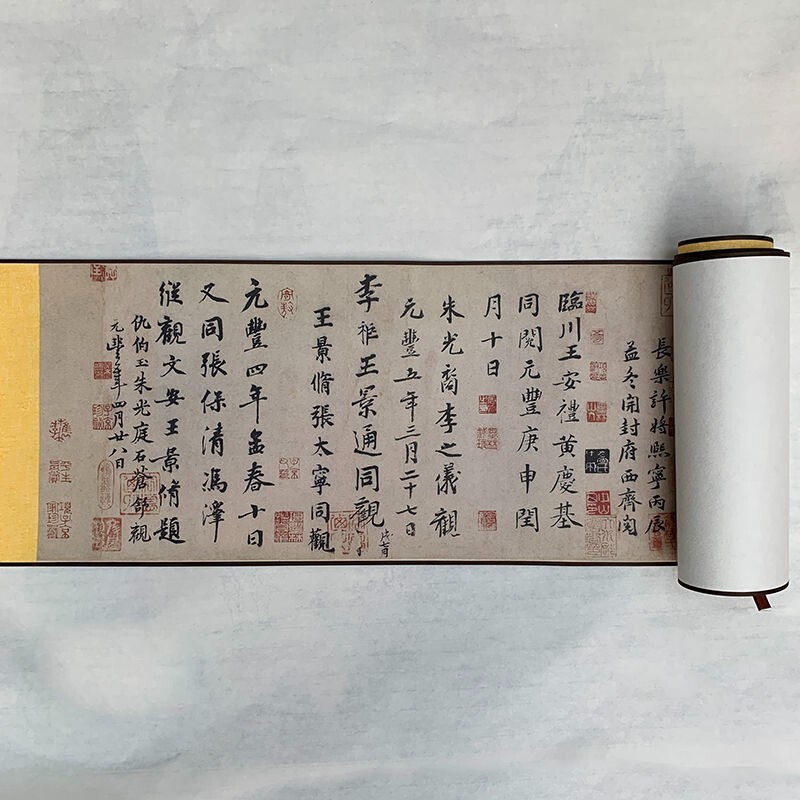 長樂許將熙寧丙辰
孟冬開封府西齋閱
臨川王安禮黃慶基
同閱元豐庚申閏
月十日
朱光裔李之儀觀
元豐五年三月二十七日
李秬王景通同觀
王景脩張太寧同觀
元豐四年孟春十日
又同張保清馮澤
縱觀文安王景脩題
仇伯玉朱光庭石蒼舒觀
元豐三年四月廿八日